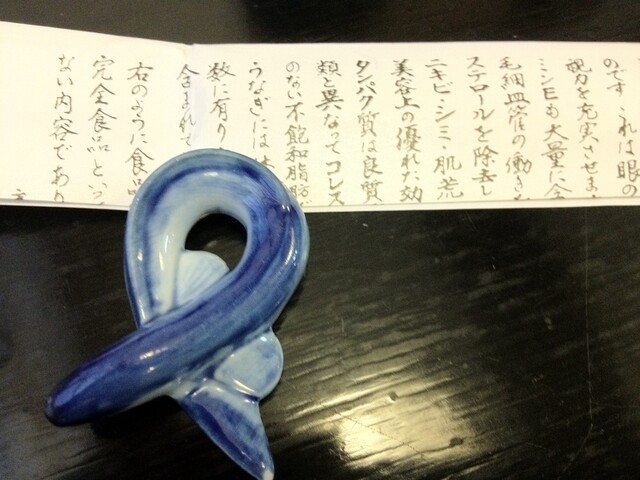 のです これは眼の
視力を充実させま
ミンEも大量に含
毛細血管の働きを
ステロールを除去し
ニキビ・シミ・肌荒
美容上の優れた効
タンパク質は良質
類と異なってコレス
のない不飽和脂肪
うなぎには
数に有り
含まれて
右のように食品
完全食品という
ない内容であり